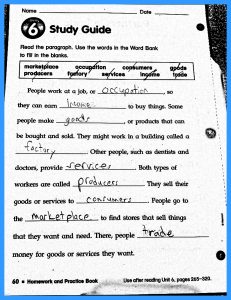 Name Date
6 Study Guide
Read the paragraph. Use the words in the Word Bank
to fill in the blanks.
marketplace occupation consumers goods
producers factory services income trade
People work at a job, or occupation, so
they can earn income to buy things. Some
people make goods, or products that can
be bought and sold. They might work in a building called a
factory. Other people, such as dentists and
doctors, provide services. Both types of
workers are called producers. They sell their
goods or services to consumers. People go to
the marketplace to find stores that sell things
that they want and need. There, people trade
money for goods or services they want.
60 • Homework and Practice Book Use after reading Unit 6, pages 265–320.